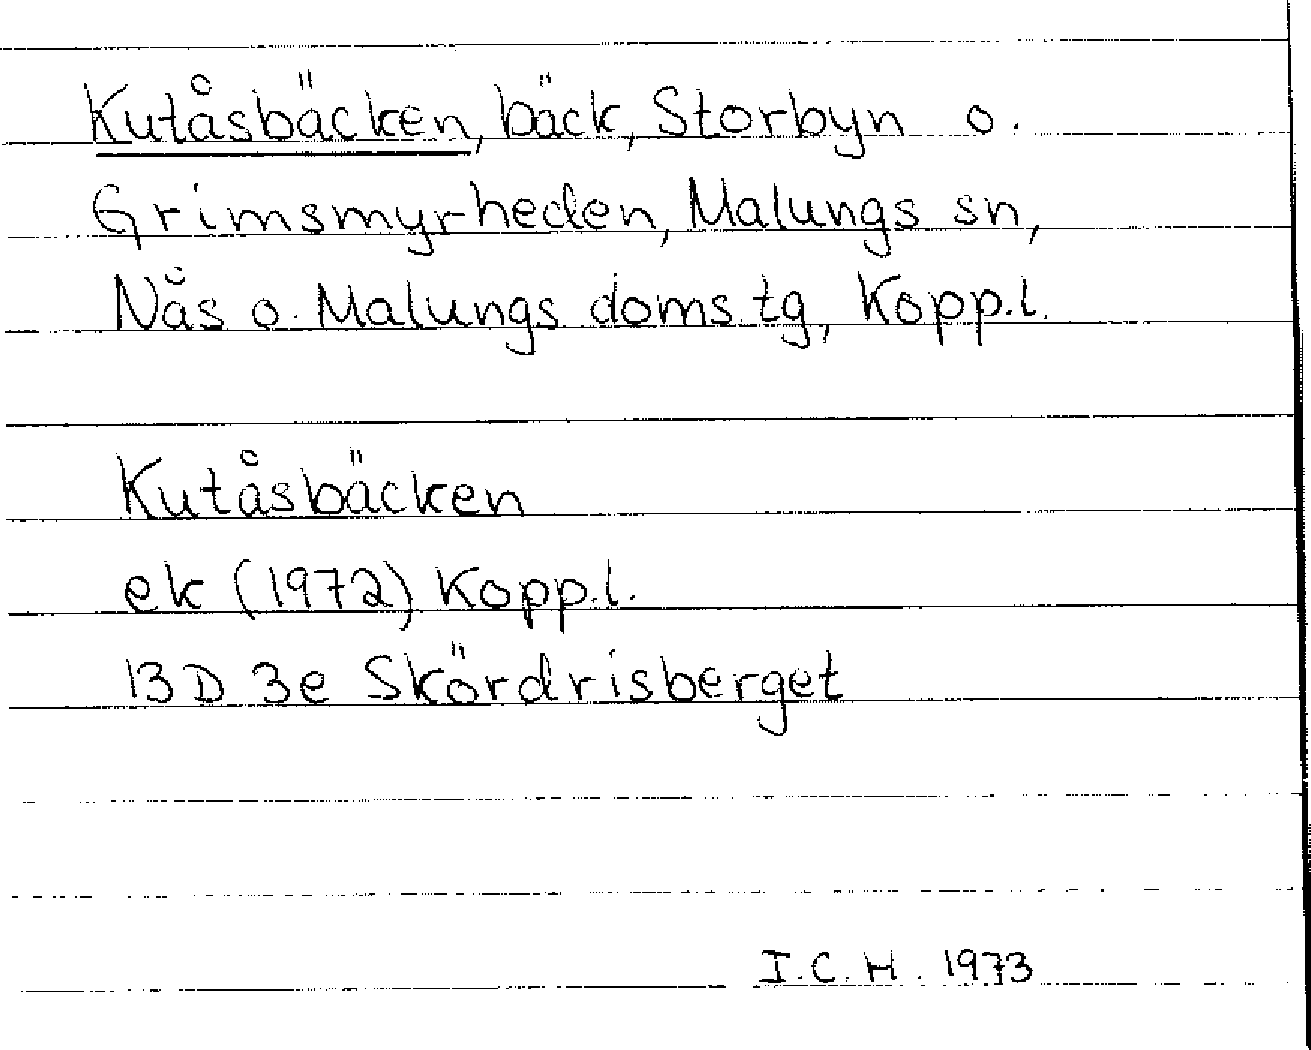 Kutåsbäcken, bäck, Storbyn o.
Grimsmyrheden, Malungs sn,
Nås o. Malungs doms.tg, Kopp.l.
Kutåsbäcken
ek (1972) Kopp.l.
13D 3e Skördrisberget
I.C.H. 1973